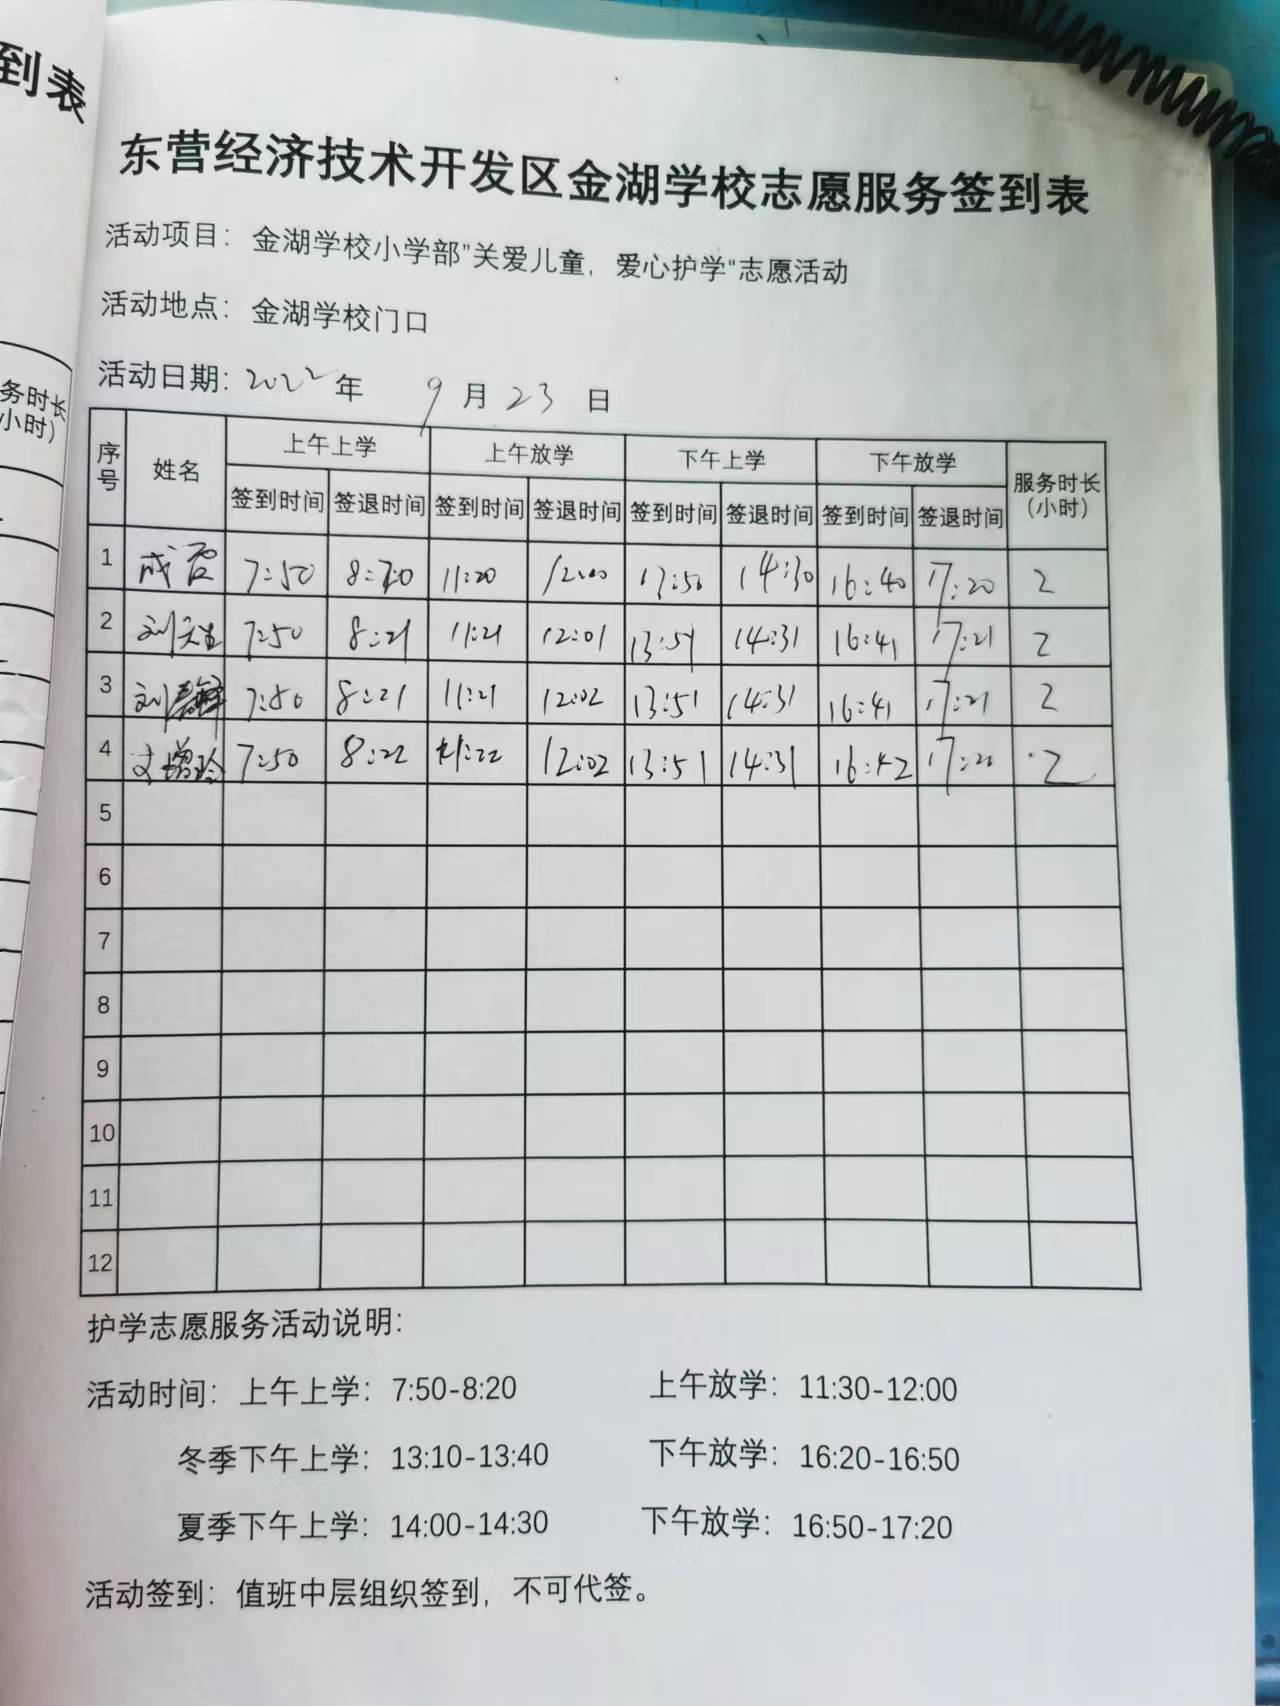 到表
务时长
小时)
东营经济技术开发区金湖学校志愿服务签到表
活动项目：金湖学校小学部"关爱儿童，爱心护学"志愿活动
活动地点：金湖学校门口
活动日期：2022年 9月23日
序号 姓名 上午上学 上午放学 下午上学 下午放学 服务时长(小时)
签到时间 签退时间 签到时间 签退时间 签到时间 签退时间 签到时间 签退时间
1 7:50 8:20 11:20 12:00 13:50 14:30 16:40 17:20 2
2 7:50 8:21 11:21 12:01 13:51 14:31 16:41 17:21 2
3 刘 7:50 8:21 11:21 12:02 13:51 14:31 16:41 17:21 2
4 7:50 8:22 11:22 12:02 13:51 14:31 16:42 2
5
6
7
8
9
10
11
12
护学志愿服务活动说明：
活动时间：上午上学：7:50-8:20 上午放学：11:30-12:00
冬季下午上学：13:10-13:40 下午放学：16:20-16:50
夏季下午上学：14:00-14:30 下午放学：16:50-17:20
活动签到：值班中层组织签到，不可代签。